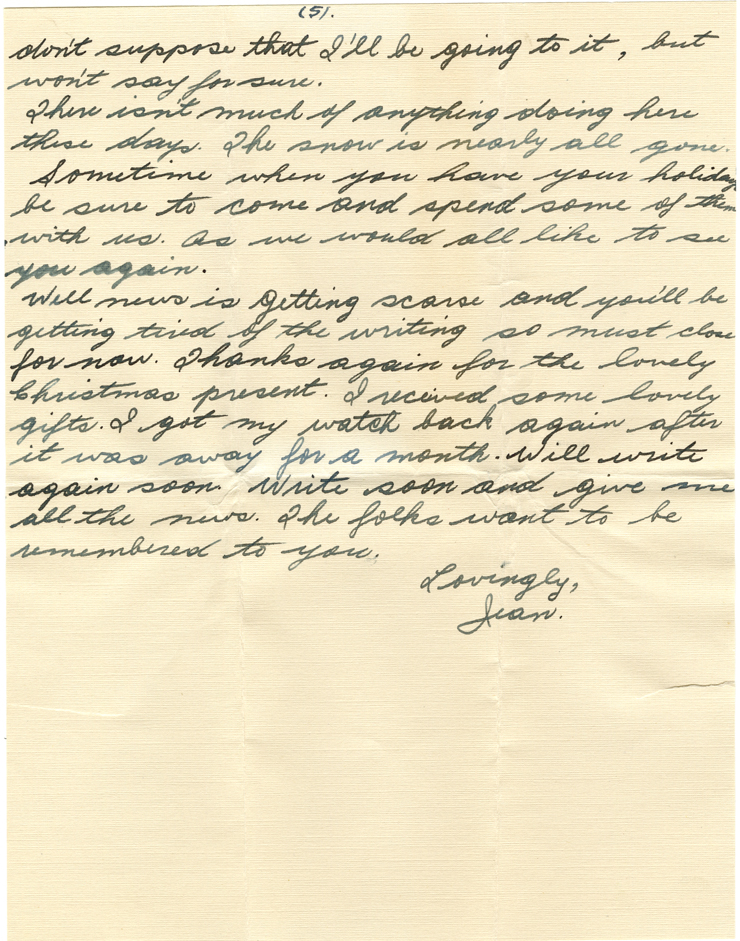 (5).
don't suppose that I'll be going to it, but
won't say for sure.
There isn't much of anything doing here
these days. The snow is nearly all gone.
Sometime when you have your holidays
be sure to come and spend some of them
with us. As we would all like to see
you again.
Well news is getting scarse and you'll be
getting tired of the writing so must close
for now. Thanks again for the lovely
Christmas present. I recieved some lovely
gifts. I got my watch back again after
it was away for a month. Will write
again soon. Write soon and give me
all the news. The folks want to be
remembered to you.
Lovingly,
Jean.